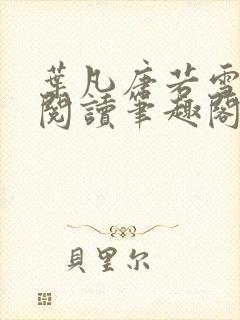 葉凡唐若雪
閱讀筆趣閣
貝里尔